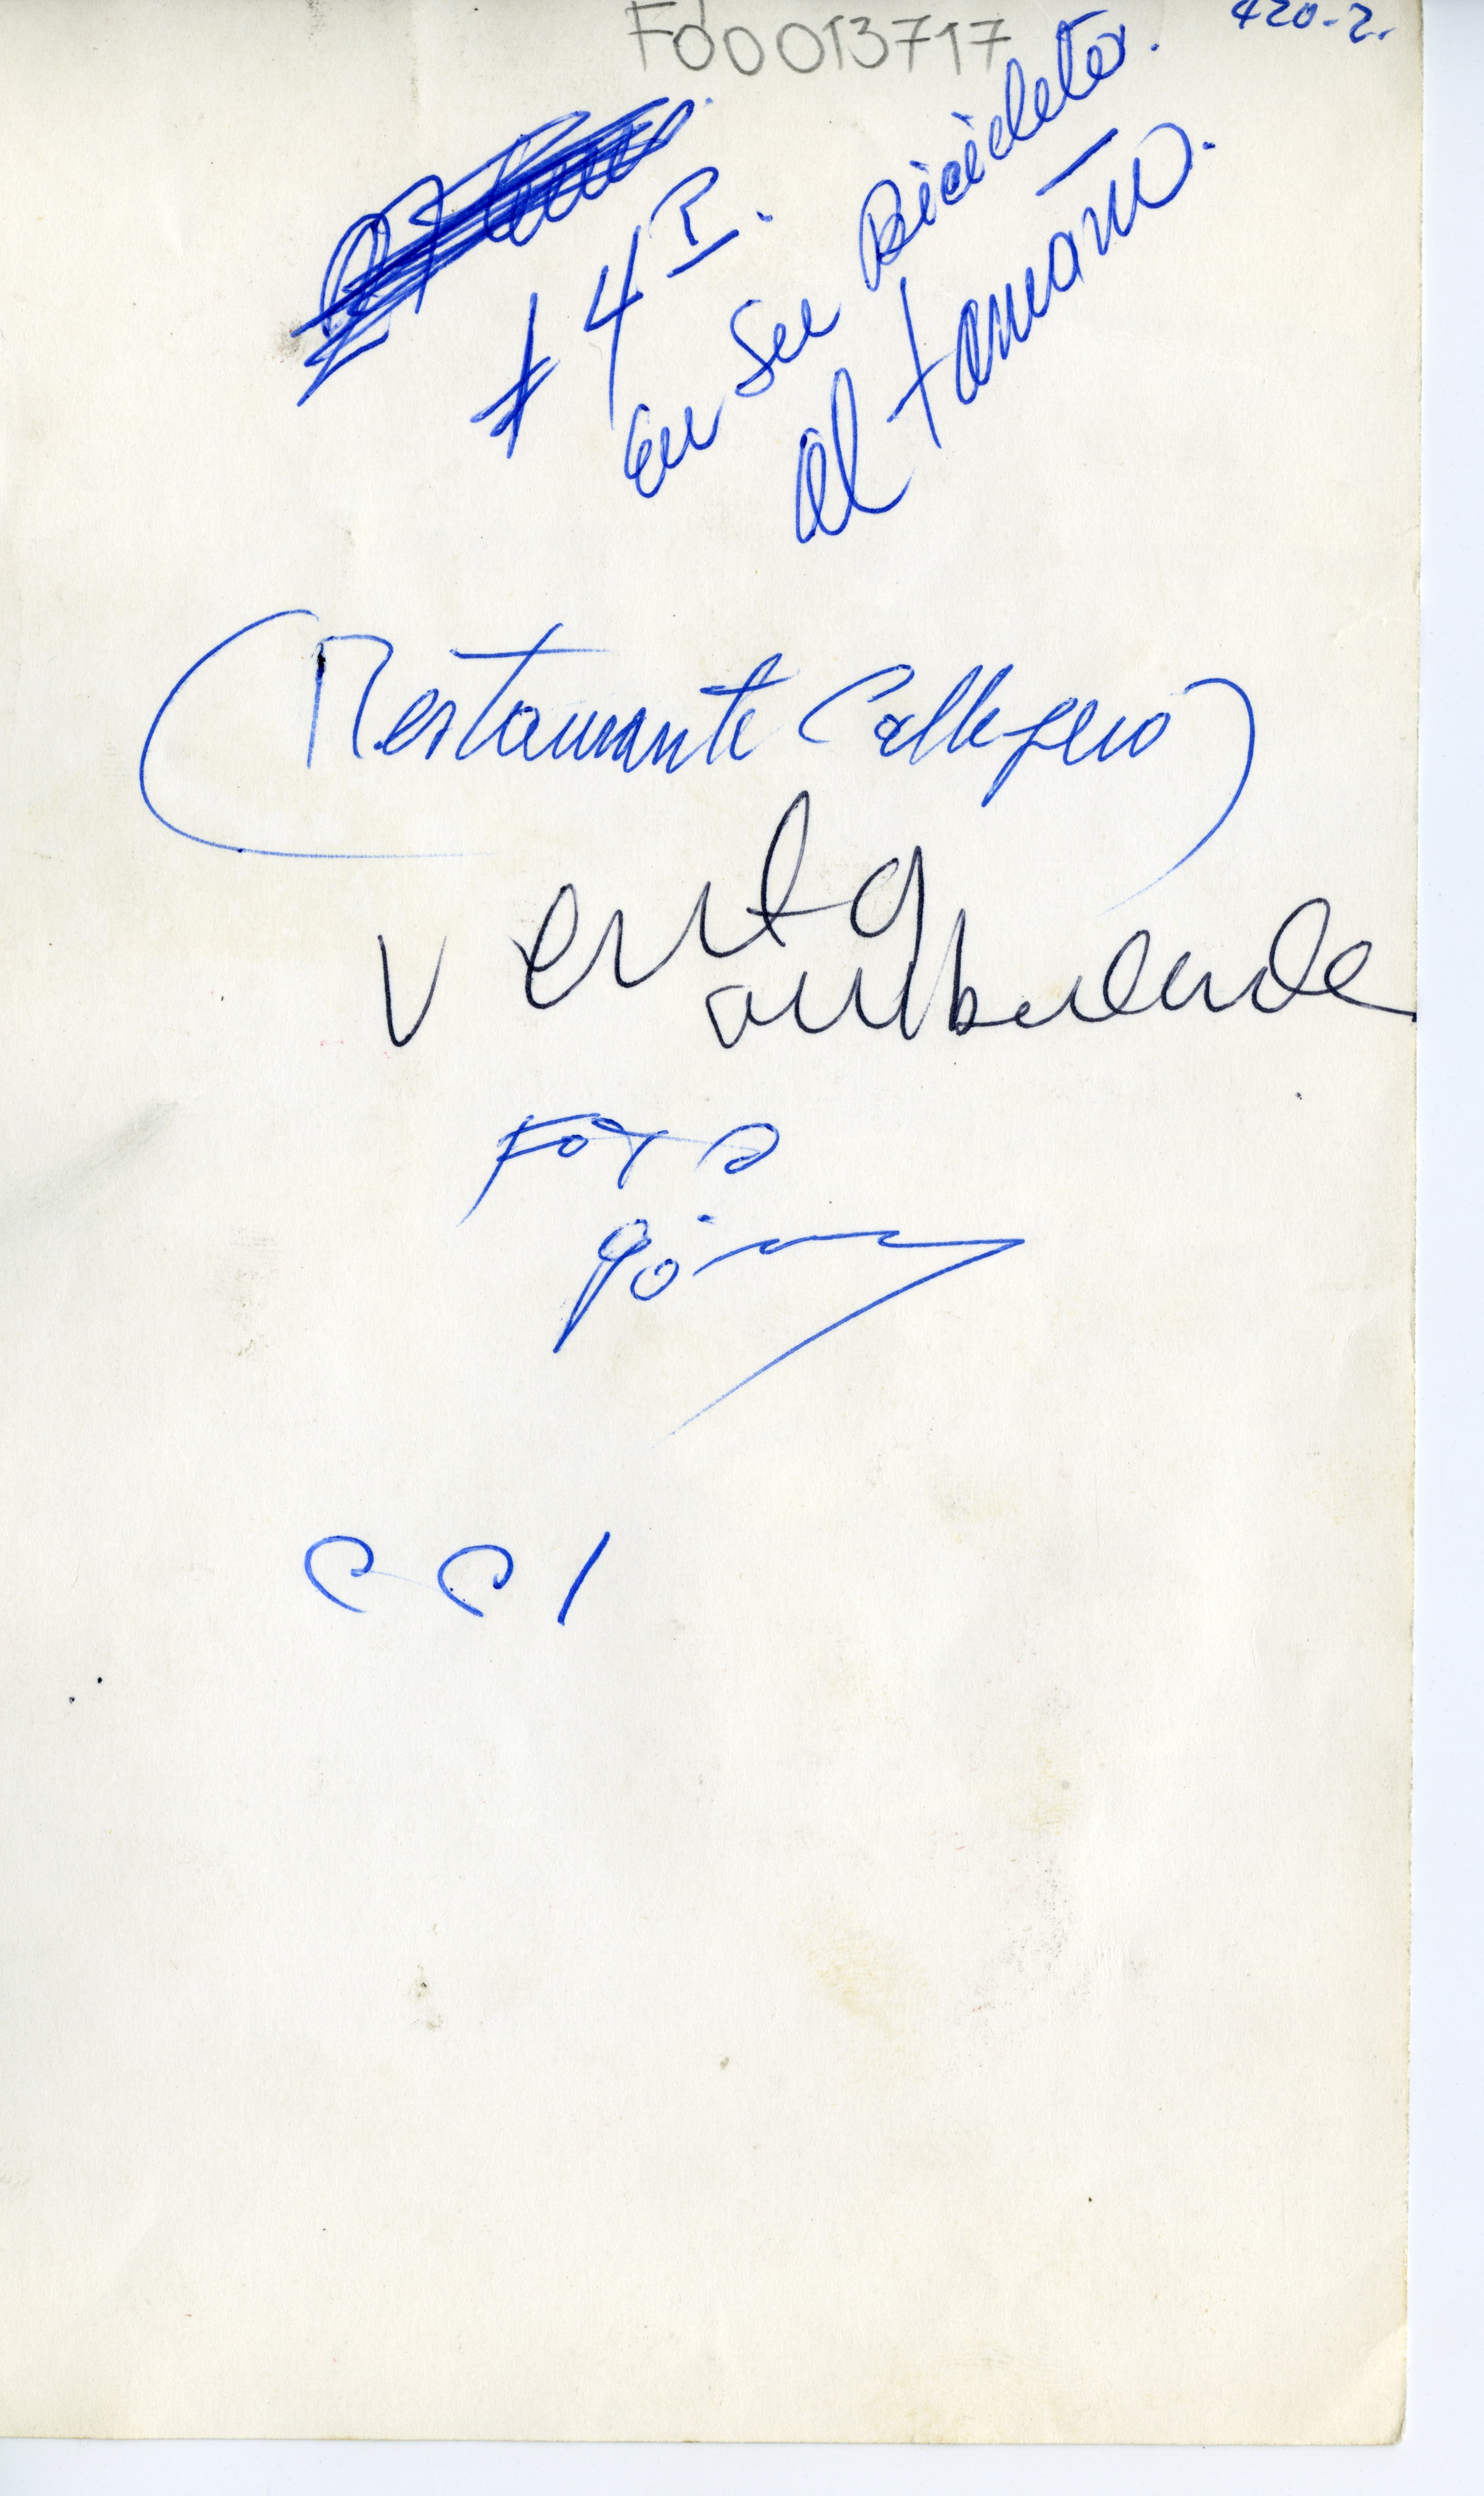 F00013717
420-2.
4 P.
en su Bicicleta.
al tamaño.
(Restaurante Callejero)
Venta
ambulante
Foto
CC1